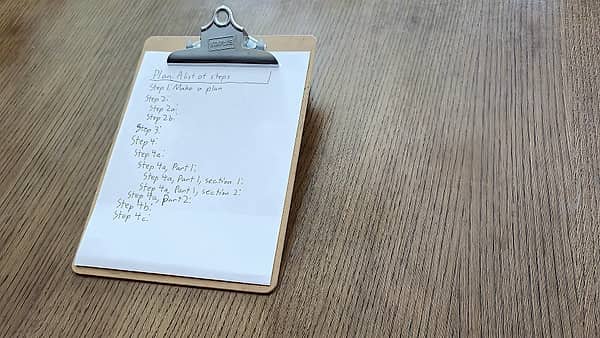 Plan: A list of steps
Step 1: Make a plan
Step 2:
Step 2a:
Step 2b:
Step 3:
Step 4:
Step 4a:
Step 4a, Part 1:
Step 4a, Part 1, section 1:
Step 4a, Part 1, section 2:
Step 4a, Part 2:
Step 4b:
Step 4c: